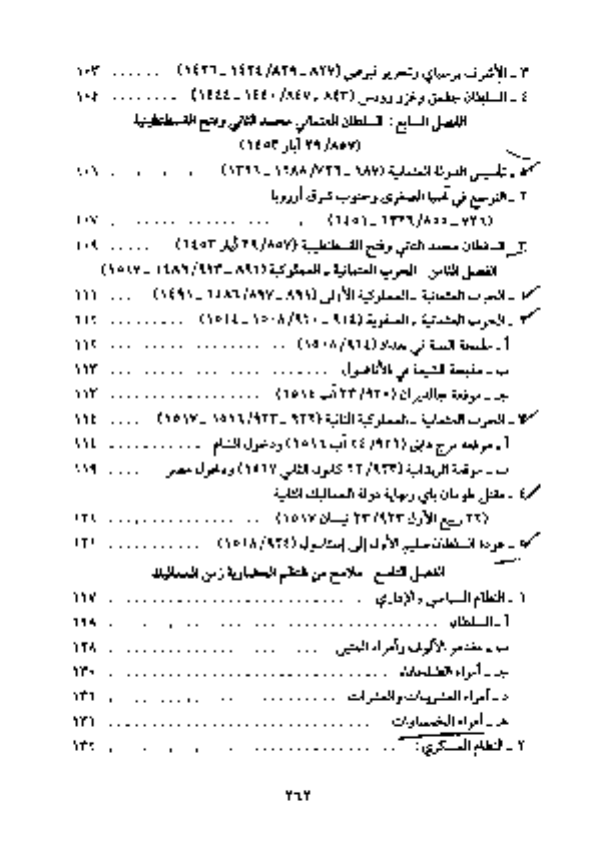 ٣ ـ الأشرف برسباي وتحرير قبرص (٨٢٧ ـ ٨٢٩/ ١٤٢٤ ـ ١٤٢٦) ...... ١٠٣
٤ ـ السلطان جقمق وغزو رودس (٨٤٣ ـ ٨٤٧/ ١٤٤٠ ـ ١٤٤٤) ........
الفصل السابع: السلطان العثماني محمد الثاني وفتح القسطنطينية
(٨٥٧/ ٢٩ أيار ١٤٥٣)
تأسيس الدولة العثمانية (٦٨٧ ـ ٧٢٦/ ١٢٨٨ ـ ١٣٢٦) . . . . ١٠٦
٢ ـ التوسع في آسيا الصغرى وجنوب شرق أوروبا
(٧٢٦ ـ ٨٥٥/ ١٣٢٦ ـ ١٤٥١) . ... ...... ..... . ١٠٧
٣ ـ السلطان محمد الثاني وفتح القسطنطينية (٨٥٧/ ٢٩ أيار ١٤٥٣) ..... ١٠٩
الفصل الثامن الحرب العثمانية ـ المملوكية (٨٩١ ـ ٩٢٣/ ١٤٨٦ ـ ١٥١٧)
ـ الحرب العثمانية ـ المملوكية الأولى (٨٩١ ـ ٨٩٧/ ١٤٨٦ ـ ١٤٩١) ... ١١١
ـ الحرب العثمانية ـ الصفوية (٩١٤ ـ ٩٢٠/ ١٥٠٨ ـ ١٥١٤) ......... ١١٢
أ ـ مذبحة السنة في بغداد (٩١٤/ ١٥٠٨) .. ... ... ... ........ ١١٢
ب ـ مذبحة الشيعة في الأناضول ........ .... ... ... .... ... ١١٣
جـ ـ موقعة جالديران (٩٢٠/ ٢٣ آب ١٥١٤) ................... ١١٣
ـ الحرب العثمانية ـ المملوكية الثانية (٩٢٢ ـ ٩٢٣/ ١٥١٦ ـ ١٥١٧) .... ١١٤
أ ـ موقعة مرج دابق (٩٢٢/ ٢٤ آب ١٥١٦) ودخول الشام ........... ١١٤
ب ـ موقعة الريدانية (٩٢٣/ ٢٢ كانون الثاني ١٥١٧) ودخول مصر .... ١١٩
٤ ـ مقتل طومان باي ونهاية دولة المماليك الثانية
(٢٢ ربيع الأول ٩٢٣/ ٢٣ نيسان ١٥١٧) .. ............ ..... ١٢١
ـ عودة السلطان سليم الأول إلى إستانبول (٩٢٤/ ١٥١٨) ........... ١٢١
الفصل التاسع ملامح من النظم الحضارية زمن المماليك
١ ـ النظام السياسي والإداري . ........................ . ١٢٧
أ ـ السلطان ................. ... .. . . . . ١٢٨
ب ـ مقدمو الألوف وأمراء المئين ... ... .. . ...... . ١٢٨
جـ ـ أمراء الطبلخانة ............................. ١٣٠
د ـ أمراء العشرينات والعشرات .......... .. .. ... .. . ١٣١
هـ ـ أمراء الخمسات .............................. ١٣١
٢ ـ النظام العسكري: .. .............. . . . . . ١٣٢
٢٦٢